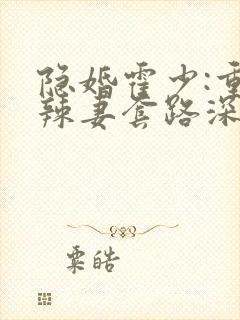 隐婚霍少:重
辣妻套路深
粟皓